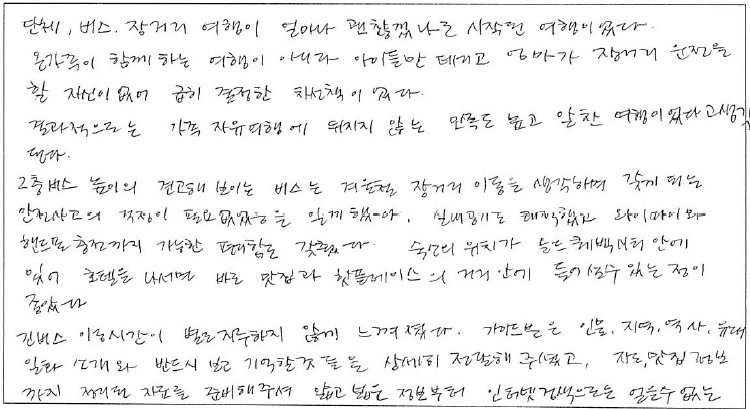 단체, 버스. 장거리 여행이 얼마나 괜찮겠나로 시작된 여행이었다.
온가족이 함께하는 여행이 아니라 아이들만 데리고 엄마가 장거리 운전을
할 자신이 없어 급히 결정한 차선책이었다.
결과적으로는 가족 자유여행에 뒤지지 않는 만족도 높고 알찬 여행이었다고 생각
된다.
2층버스 높이의 견고해 보이는 버스는 겨울철 장거리 이동을 생각하며 갖게 되는
안전사고의 걱정이 필요없었음을 알게 했으며, 실내공기도 쾌적했고 와이파이와
핸드폰 충전까지 가능한 편리함도 갖췄었다. 숙소의 위치가 올드퀘백시티 안에
있어 호텔을 나서면 바로 맛집과 핫플레이스의 거리안에 들어설수 있는 점이
좋았다
긴버스 이동시간이 별로 지루하지 않게 느껴졌다. 가이드분은 인물, 지역, 역사, 유래
일화 소개와 반드시 보고 기억할것들을 상세히 전달해 주셨고, 지도, 맛집 정보
까지 정리된 자료를 준비해주셔 얇고 넓은 정보부터 인터넷검색으로는 얻을수 없는